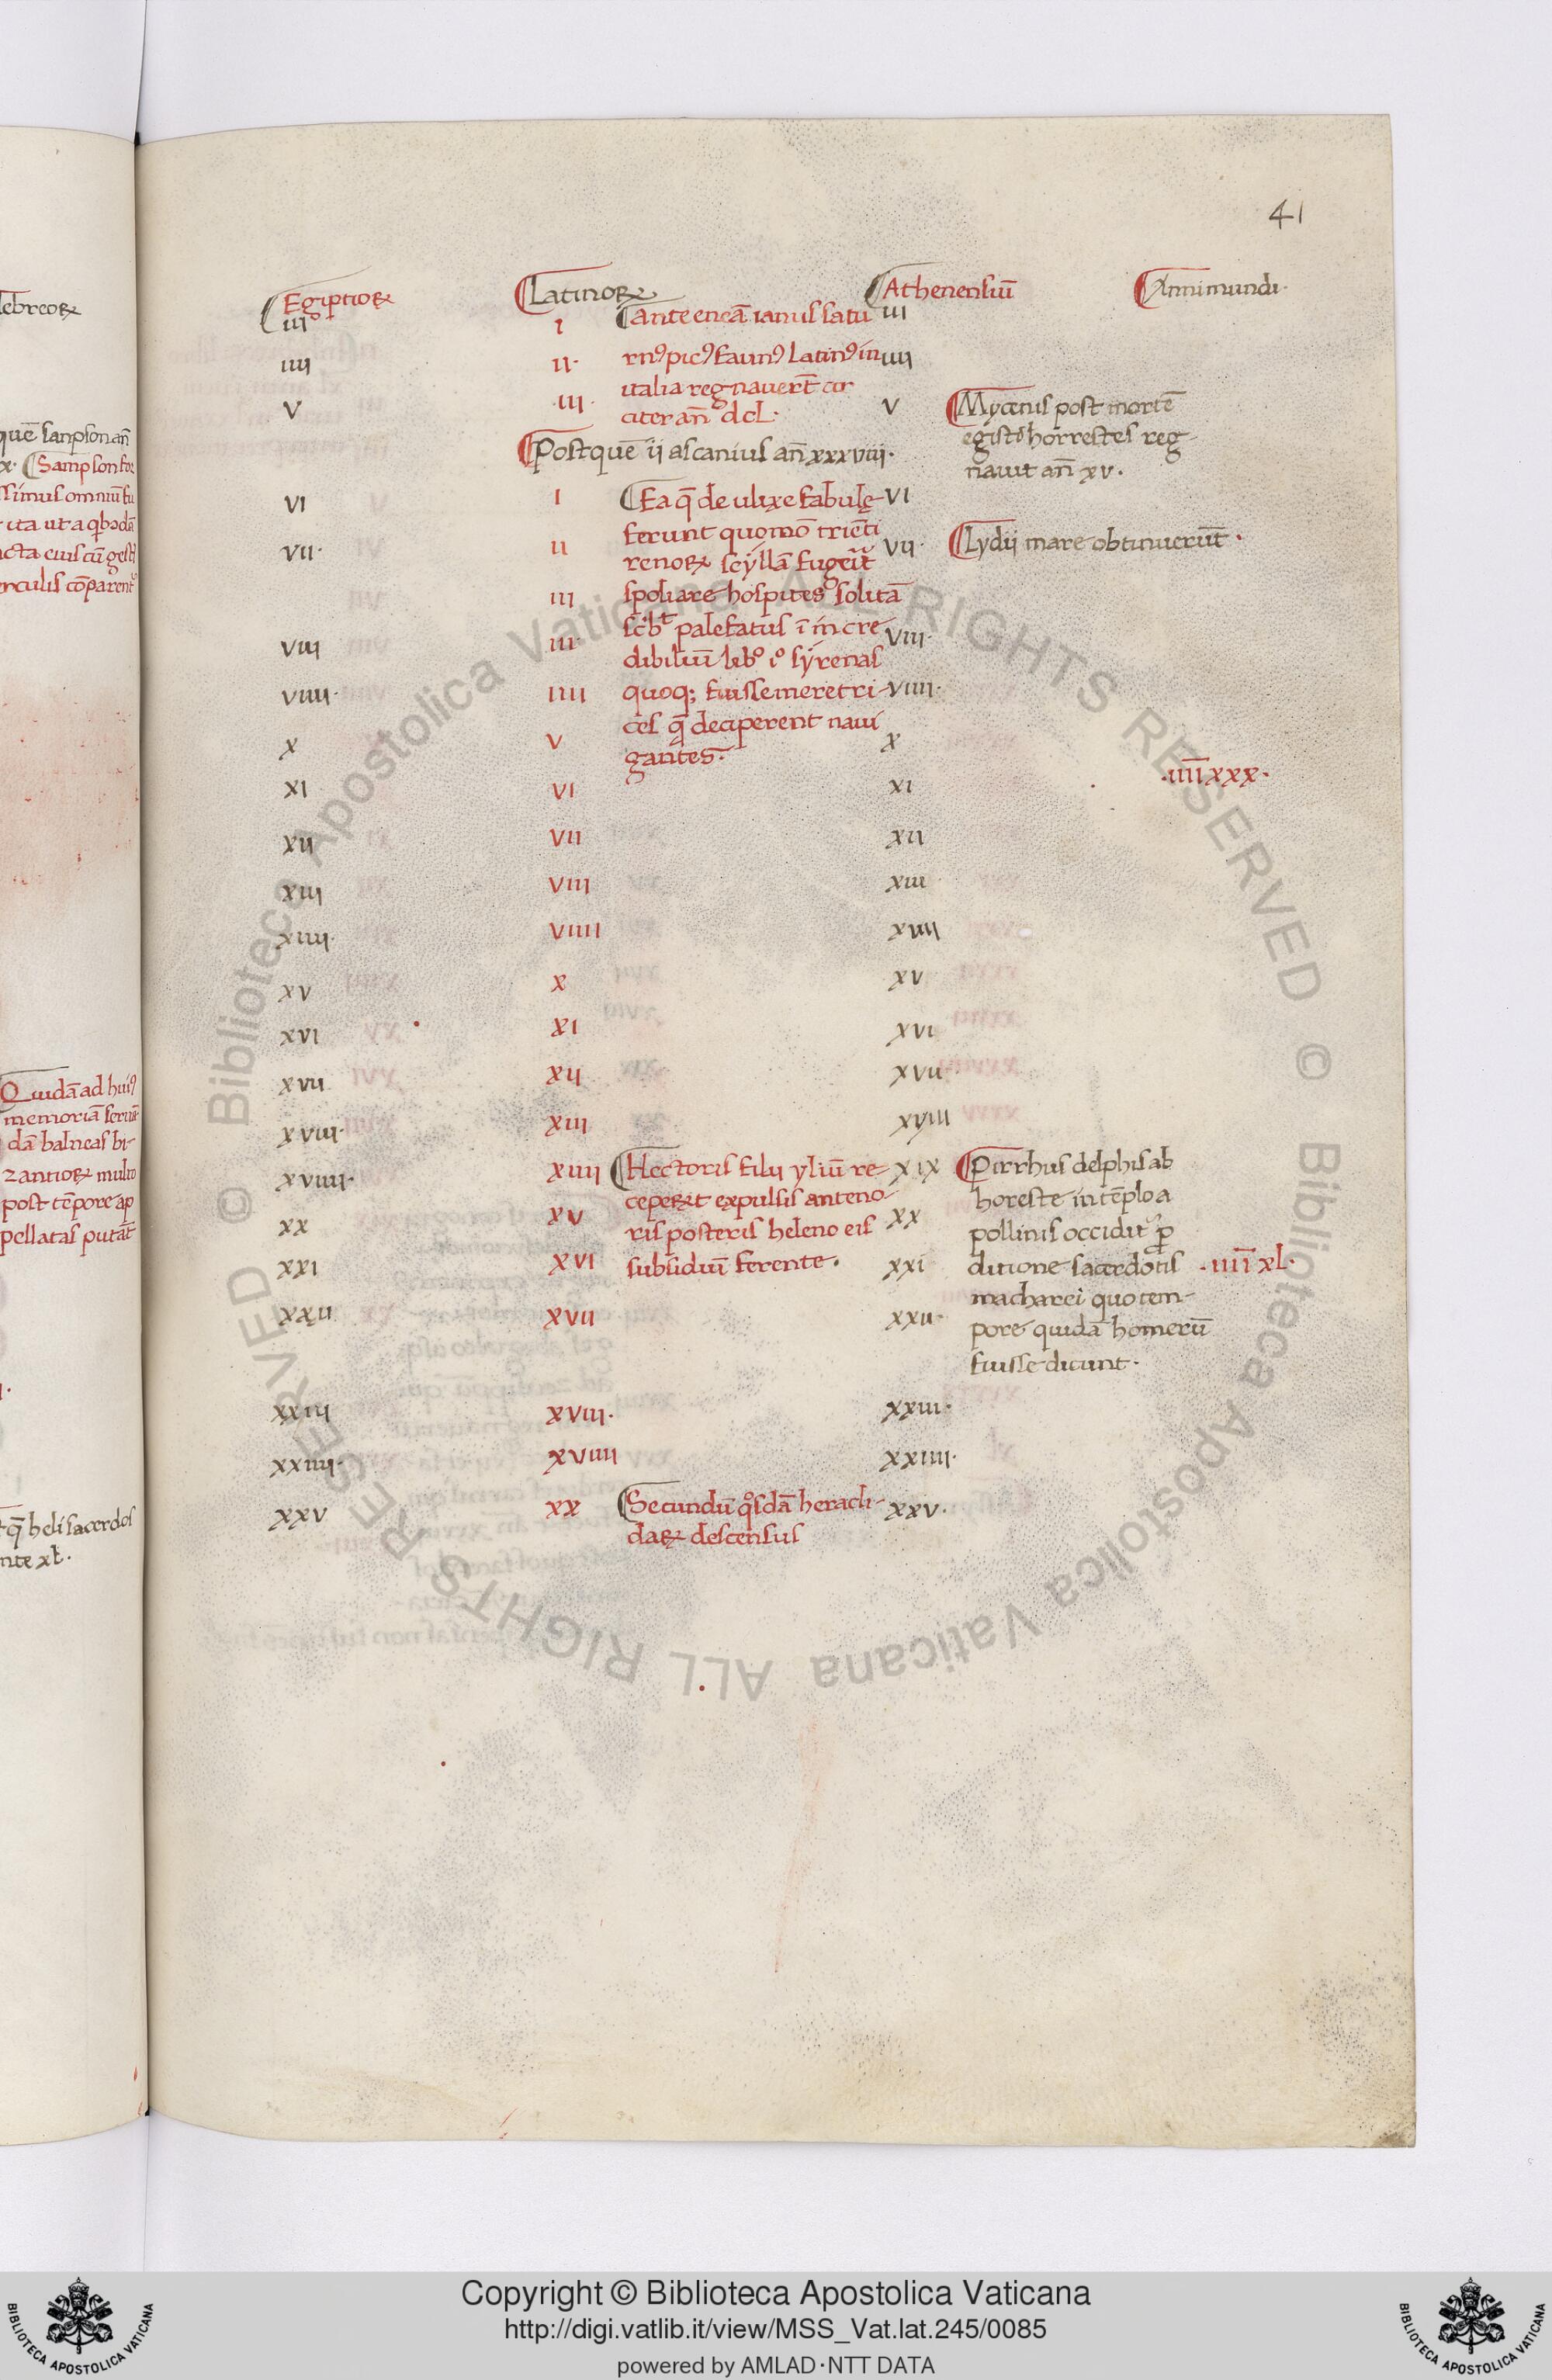 41
Egiptioꝝ
Latinoꝝ
Athenensiū
Anni mundi·
iii
i
Ante eneā ianus satu
iii
iiii
ii·
rnꝰ picꝰ faunꝰ latinꝰ in
iiii
italia regnauerт̄ cir
v
iii·
citer an̄ dcl·
v
Mycenis post mortē
egisti horrestes reg-
nauit an̄ xv·
Postquē ii ascanius an̄ xxxviii·
vi
i
Ea q̄ de ulixe fabulę
vi
ferunt quomō trienti
vii·
ii
renoꝝ scyllā fugerit
vii·
Lydii mare obtinuerūt·
iii
spoliare hospites solitā
viii
iii·
palefatus ī incre
viii·
dibiliū libº iº syrenas
viiii·
iiii
quoq; fuisse meretri-
viiii·
ces q̄ deciperent naui
x
v
gantes·
x
·iiii̅xxx·
xi
vi
xi
xii
vii
xii
xiii
viii
xiii
xiiii·
viiii
xiiii
xv
x
xv
xvi
xi
xvi
xvii
xii
xvii·
xviii·
xiii
xviii
xviiii·
xiiii
Hectoris filii yliū re-
xix
Pirrhus delphis ab
ceperūt expulsis anteno-
horeste in tēplo a
xx
xv
ris posteris heleno eis
xx
pollinis occidit᷑ ꝓ
xxi
xvi
subsidiū ferente·
xxi
ditione sacerdotis
·iiii̅ xl·
macharei quo tem-
xxii
xvii
xxii·
pore quidā homerū
fuisse dicunt·
xxiii
xviii·
xxiii·
xxiiii·
xviiii
xxiiii·
xxv
xx
Secundū qºsdā heracli-
xxv·
daꝝ descensus
ebreoꝝ
quē sanpson an̄
x· Sampson for
ssimus omniū fu
ita ut a
acta eius cū gesti
enculis cōparent᷑
Quidā ad huiꝰ
memoriā
dā balneas bi-
zantioꝝ multo
post tēpore ap
pellatas putāt
q̄ heli sacerdos
nte xl·
© Biblioteca Apostolica Vaticana ALL RIGHTS RESERVED © Biblioteca Apostolica Vaticana ALL RIGHTS RESERVED
Copyright © Biblioteca Apostolica Vaticana
http://digi.vatlib.it/view/MSS_Vat.lat.245/0085
powered by AMLAD·NTT DATA
BIBLIOTECA APOSTOLICA VATICANA
BIBLIOTECA APOSTOLICA VATICANA